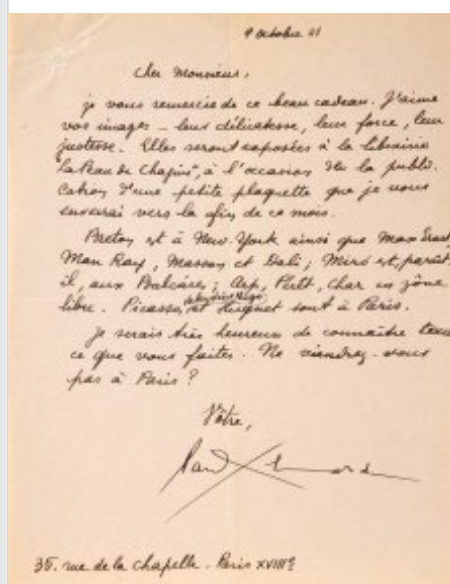 9 octobre 41
Cher Monsieur,
je vous remercie de ce beau cadeau. J'aime
vos images – leur délicatesse, leur force, leur
justesse. Elles seront exposées à la librairie
"La Peau de Chagrin", à l'occasion de la publi-
cation d'une petite plaquette que je vous
enverrai vers la fin de ce mois.
Breton est à New-York ainsi que Max Ernst,
Man Ray, Masson et Dali ; Miró est, paraît-
il, aux Baléares ; Arp, Péret, Char en zône
libre. Picasso, Valentine Hugo et Huguet sont à Paris.
Je serais très heureux de connaître tout
ce que vous faites. Ne viendrez-vous
pas à Paris ?
Vôtre,
Paul Eluard
35. rue de la Chapelle. Paris XVIIIe